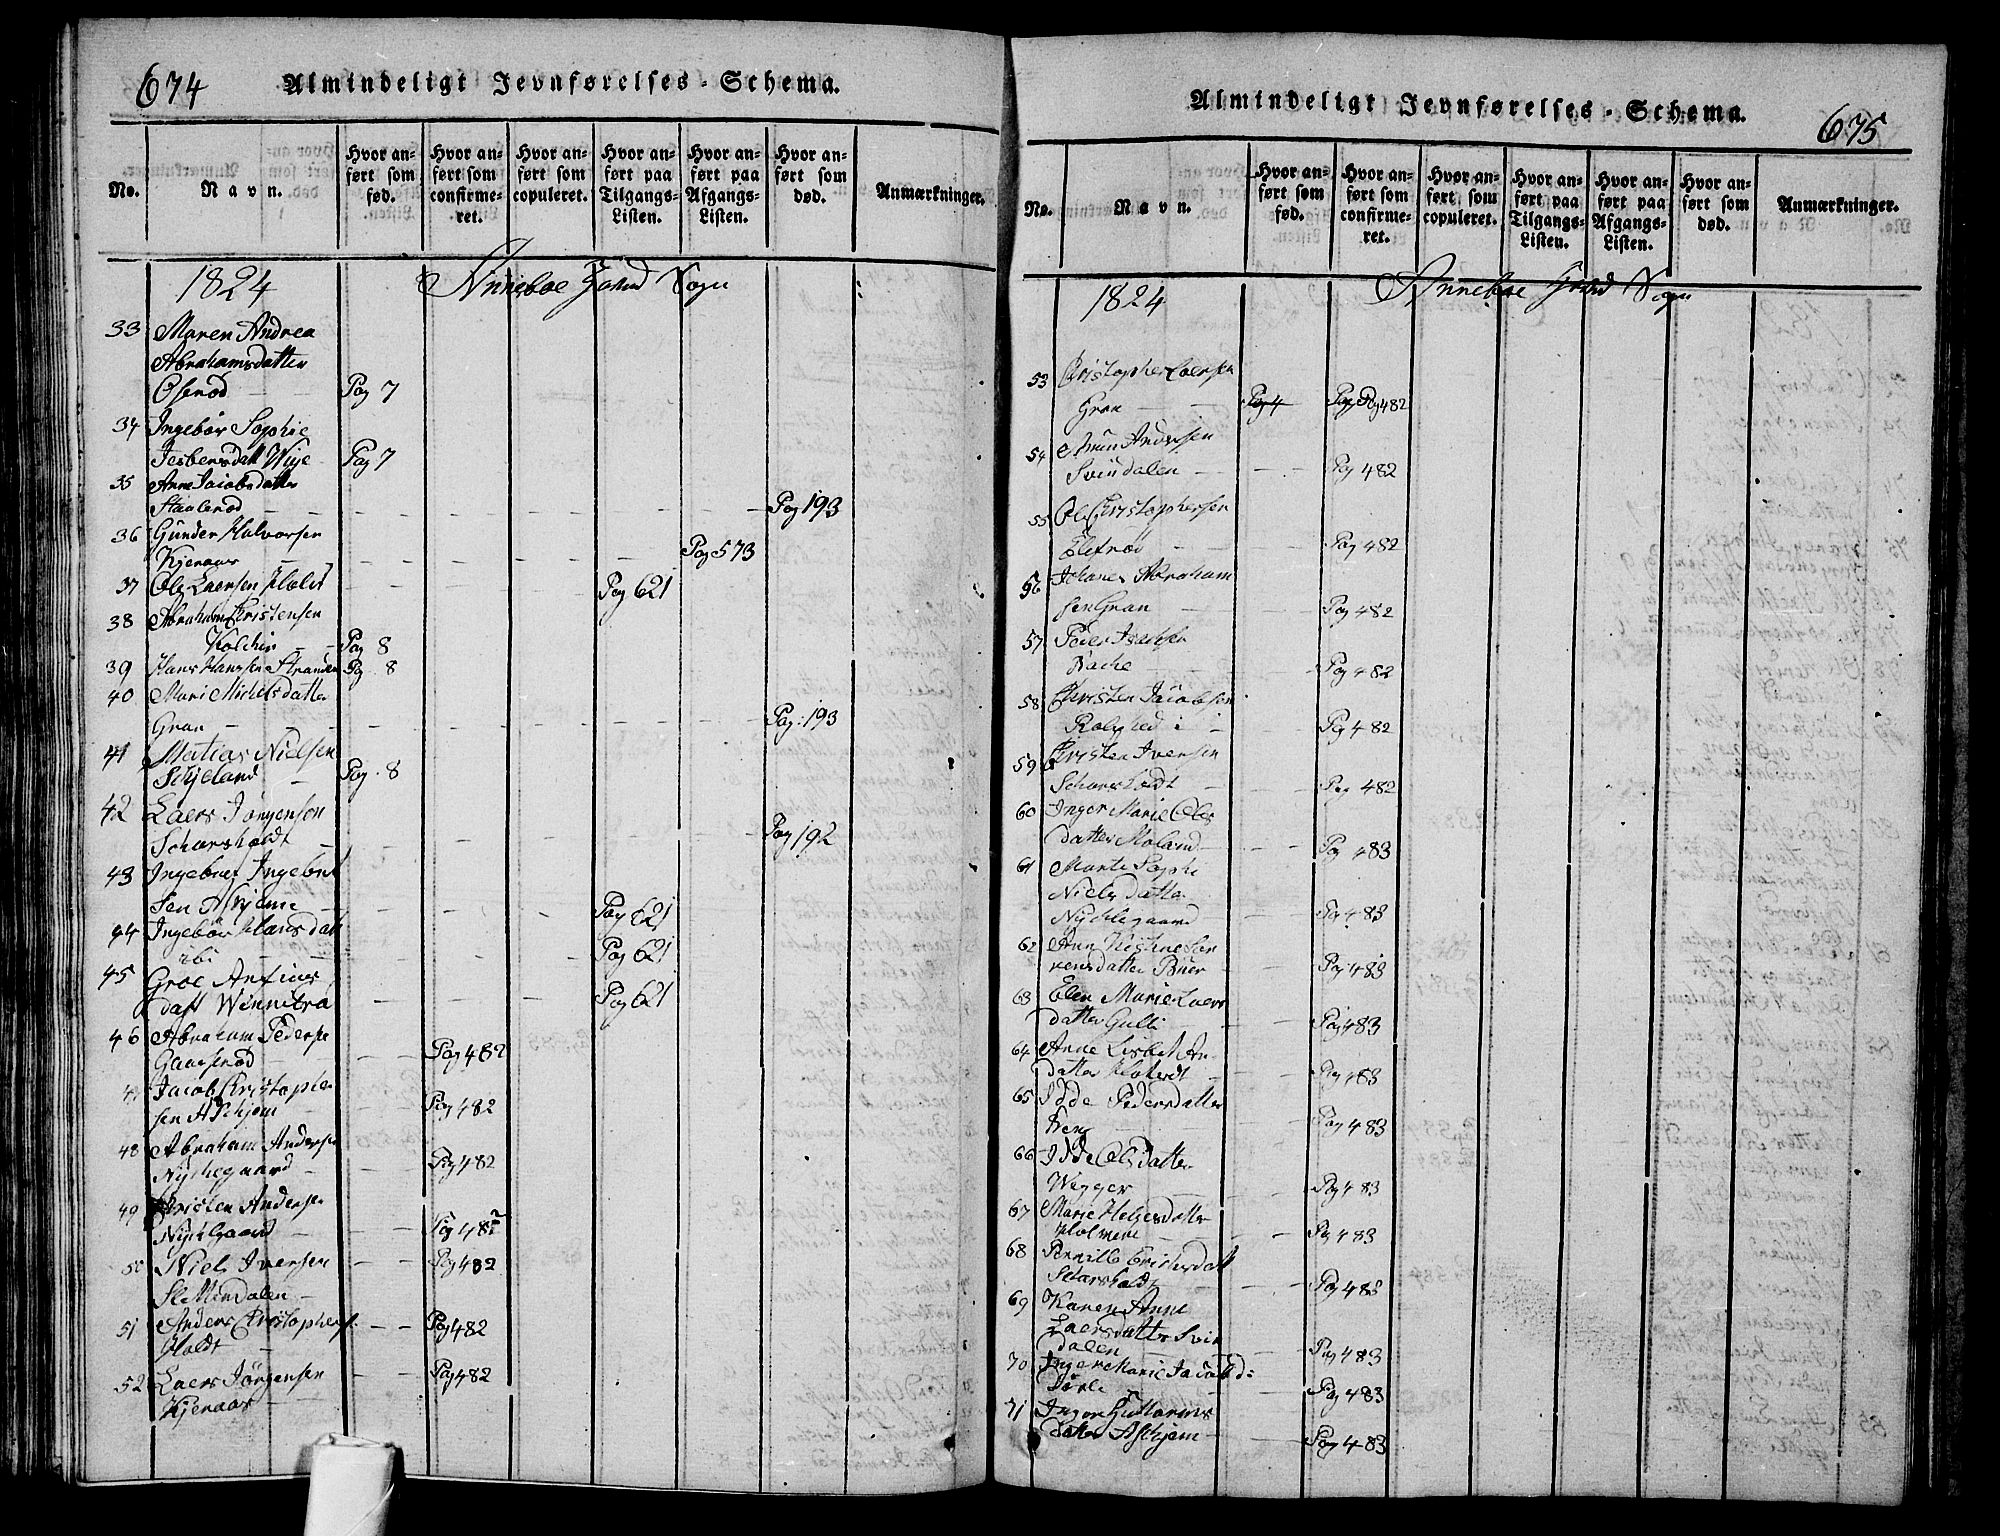 674
Almindeligt Jevnførelses-Schema.
No.
Navn.
Hvor an-
ført som
fød.
Hvor an-
ført som
confirme-
ret.
Hvor an-
ført som
copuleret.
Hvor an-
ført paa
Tilgangs-
Listen.
Hvor an-
ført paa
Afgangs-
Listen.
Hvor an-
ført som
død.
Anmærkninger.
1824 Anneboe Sogn
33 Maren Andrea
Abrahamsdatter
Oserød Pag 7
34 Ingebør Sophie
Jesbersdatt Wiye Pag 7
35 Anne Jacobsdatter
Staalerød Pag 193
36 Gunder Halvorsen
Kjenaas Pag 573
37 Ole Laersen Holdt Pag 621
38 Abraham Cristensen
Pag 8
39 Hans Hansen Stranden Pag 8
40 Mari Michelsdatter
Gran Pag. 193
41 Matias Nielsen
Schjeland Pag. 8
42 Laers Jörgensen
Schorsholdt Pag 192
43 Ingebret Ingebret
sen Pag 621
44 Ingebör Hansdatt
ibi Pag 621
45 Groe
datt Pag 621
46 Abraham Pederse
Gaaserød Pag 482
47 Jacob Cristophe
sen Aschjem Pag 482
48 Abraham Anderse
Nykegaard Pag 482
49 Cristen Anderse
Pag 482
50 Niels Iversen Pag 482
51 Anders Cristophers
Holdt Pag 482
52 Laers Jörgensen Pag 482
Kjenaas
Almindeligt Jevnførelses-Schema.
675
No.
Navn.
Hvor an-
ført som
fød.
Hvor an-
ført som
confirme-
ret.
Hvor an-
ført som
copuleret.
Hvor an-
ført paa
Tilgangs-
Listen.
Hvor an-
ført paa
Afgangs-
Listen.
Hvor an-
ført som
død.
Anmærkninger.
1824 Anneboe Sogn
53 Cristopher Laersen
Gran Pag 4 Pag Pag 482
54 Andersen
Svindalen Pag 482
55 Ole Christophersen
Pag 482
56 Johanes Abraham
sen Gran Pag 482
57 Peder Isachsen
Bache Pag 482
58 Christen Jacobsen
Pag 482
59 Cristen Iversen
Schorsholdt Pag 482
60 Inger Marie Oles
datter Moland Pag 483
61 Marte Sophi
Nielsdatter
Nykkegaard Pag 483
62 Ann Kistine Sör
rensdatter Buer Pag 483
63 Elen Marie Laers
datter Gulli Pag 483
64 Anne Lisbet An
datter Pag 483
65 Idde Pedersdatter
Pag 483
66 Idde Olsdatter
Wegger Pag 483
67 Marie Helgesdatter
Holmene Pag 483
68 Pernille Erichsdatt
Schorsholdt Pag 483
69 Karen Anne
Laersdatter Svin
dalen Pag 483
70 Inger Marie Jacobsd:
Pag 483
71 Inger Guttorms
datter Aschjem Pag 483